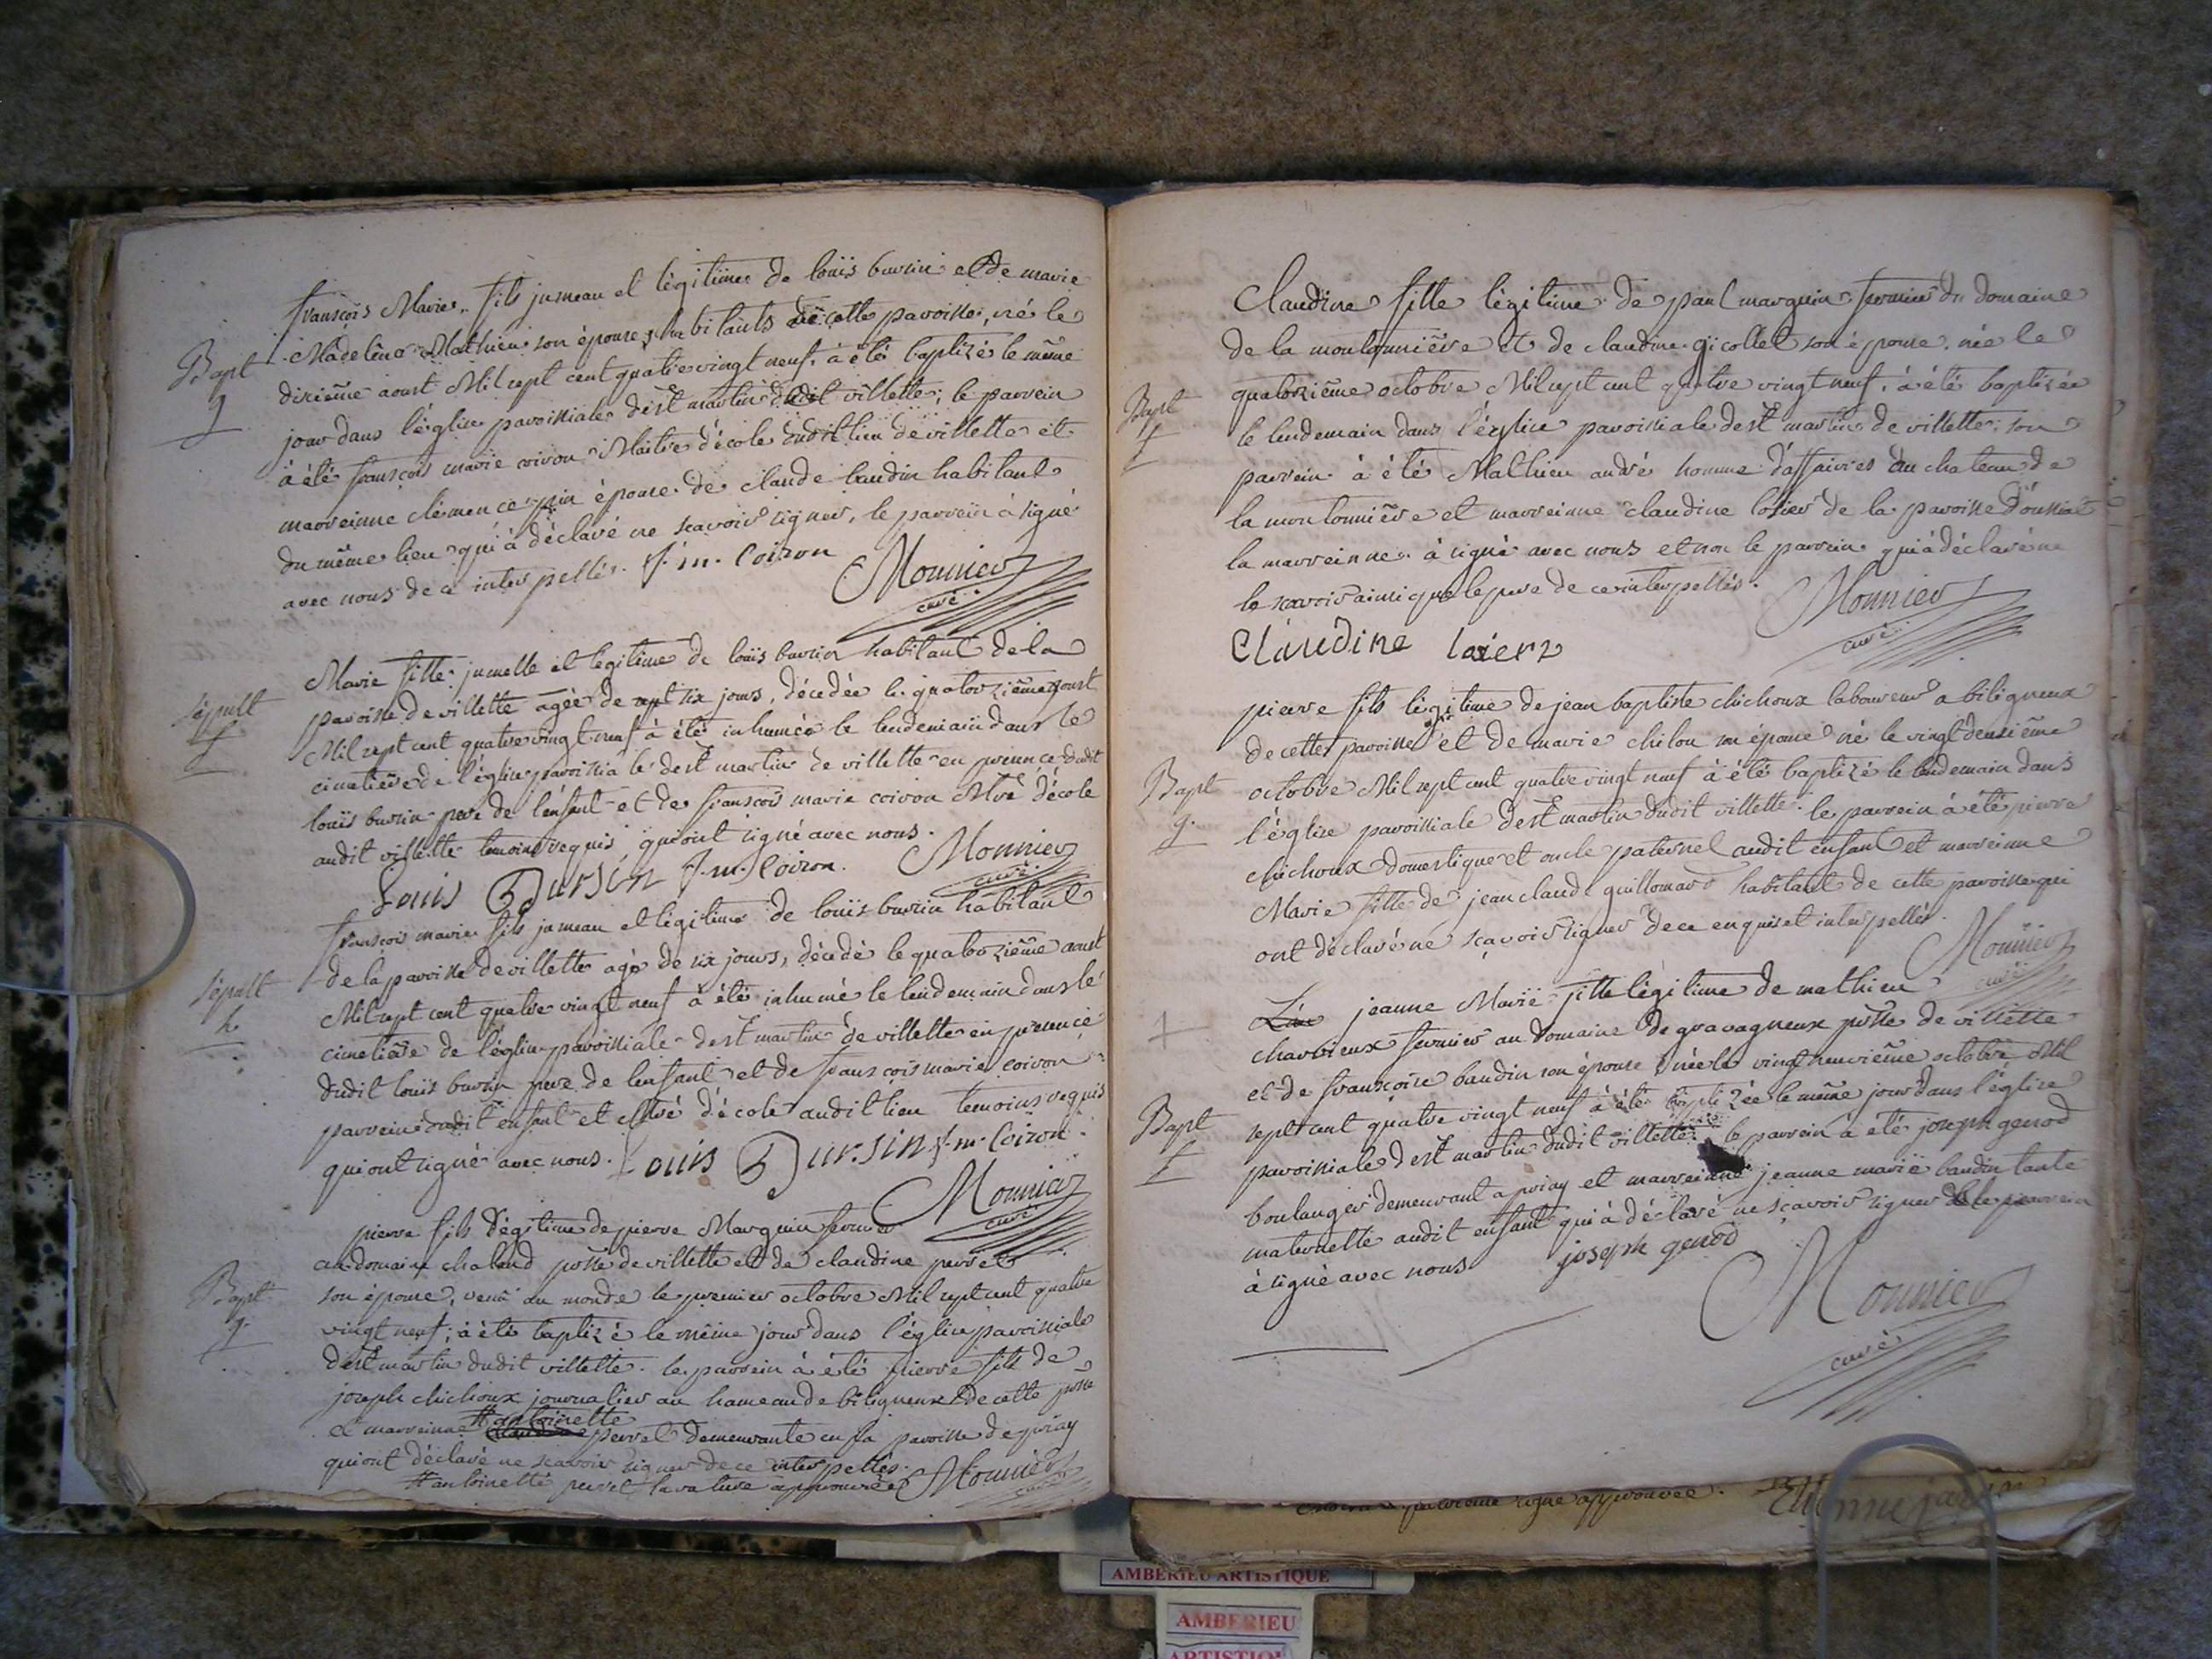 françois Marie, fils jumeau et légitime de louis bursin et de marie
Madeléne Mathieu son épouse, habitants de cette paroisse, né le
dixième aoust Mil sept cent quatre vingt neuf, à été baptizé le même
jour dans l'église paroissiale de st martin dudit villette; le parrein
à été françois marie coiron Maitre d'école dudit lieu de villette et
marreinne clémence pin épouse de claude baudin habitant
du même lieu qui à déclaré ne scavoir signer, le parrein à signé
avec nous de ce interpellés. f. m. Coiron
Monnier
curé
Bapt
g
Marie fille jumelle et legitime de louis bursin habitant de la
paroisse de villette agée de six jours, décedée le quatorzième aoust
Mil sept cent quatre vingt neuf à été inhumée le lendemain dans le
cimetière de l'église paroissiale de st martin de villette en presence dudit
louis bursin pere de l'enfant et de françois marie coiron Mtre d'école
audit villette temoins requis qui ont signé avec nous.
Louis Bursin f. m. Coiron. Monnier
curé
sépult
f
françois marie fils jumeau et légitime de louis bursin habitant
de la paroisse de villette agé de six jours, décédé le quatorzième aoust
Mil sept cent quatre vingt neuf à été inhumé le lendemain dans le
cimetière de l'église paroissiale de st martin de villette en presence
dudit louis bursin pere de l'enfant et de françois marie coiron
parrein dudit enfant et Mtre d'école audit lieu temoins requis
qui ont signé avec nous. Louis Bursin f. m. Coiron.
Monnier
curé
sépult
h
pierre fils légitime de pierre Marguin fermier
au domaine chaland psse de villette et de claudine perret
son épouse, venu au monde le premier octobre Mil sept cent quatre
vingt neuf, à été baptizé le même jour dans l'église paroissiale
de st martin dudit villette. le parrein à été pierre fils de
joseph chichoux journalier au hameau de biligneux de cette psse
et marreinne # antoinette perret demeurante en la paroisse de priay
qui ont déclaré ne scavoir signer de ce interpellés.
# antoinette perret la rature approuvée Monnier
curé
Bapt
g.
Claudine fille légitime de paul marguin fermier du domaine
de la moutonnière et de claudine gicollet son épouse, née le
quatorzième octobre Mil sept cent quatre vingt neuf, à été baptizée
le lendemain dans l'église paroissiale de st martin de villette: son
parrein à été Mathieu andré homme d'affaires du chateau de
la moutonnière et marreinne claudine losier de la paroisse d'oussiat
la marreinne à signé avec nous et non le parrein qui à déclaré ne
le scavoir ainsi que le pere de ce interpellés.
Monnier
curé
Claudine
Bapt
f
pierre fils légitime de jean baptiste chichoux laboureur a biligneux
de cette paroisse et de marie chilou son épouse né le vingt deuxième
octobre Mil sept cent quatre vingt neuf à été baptizé le lendemain dans
l'église paroissiale de st martin dudit villette. le parrein à été pierre
chichoux domestique et oncle paternel audit enfant et marreinne
Marie fille de jean claude guillomard habitant de cette paroisse qui
ont déclaré ne sçavoir signer de ce enquis et interpellés.
Monnier
curé
Bapt
g.
jeanne Marie fille légitime de mathieu
charvieux fermier au domaine de gravagneux psse de villette
et de françoise baudin son épouse, née le vingt neuvième octobre Mil
sept cent quatre vingt neuf à été baptizée le même jour dans l'église
paroissiale de st martin dudit villette. le parrein à été joseph genod
boulanger demeurant a priay et marreinne jeanne marie baudin tante
maternelle audit enfant qui à déclaré ne sçavoir signer le parrein
à signé avec nous joseph genod
Monnier
curé
Bapt
f
ligne approuvée.
AMBERIEU ARTISTIQUE
AMBERIEU
ARTISTIQUE